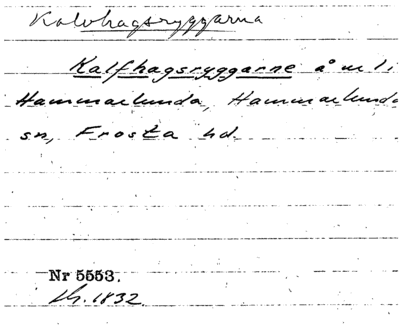 Kalvhagsryggarna
Kalfhagsryggarne å m li
Hammarlunda, Hammarlunda
sn, Frosta hd.
Nr 5553.
1832.